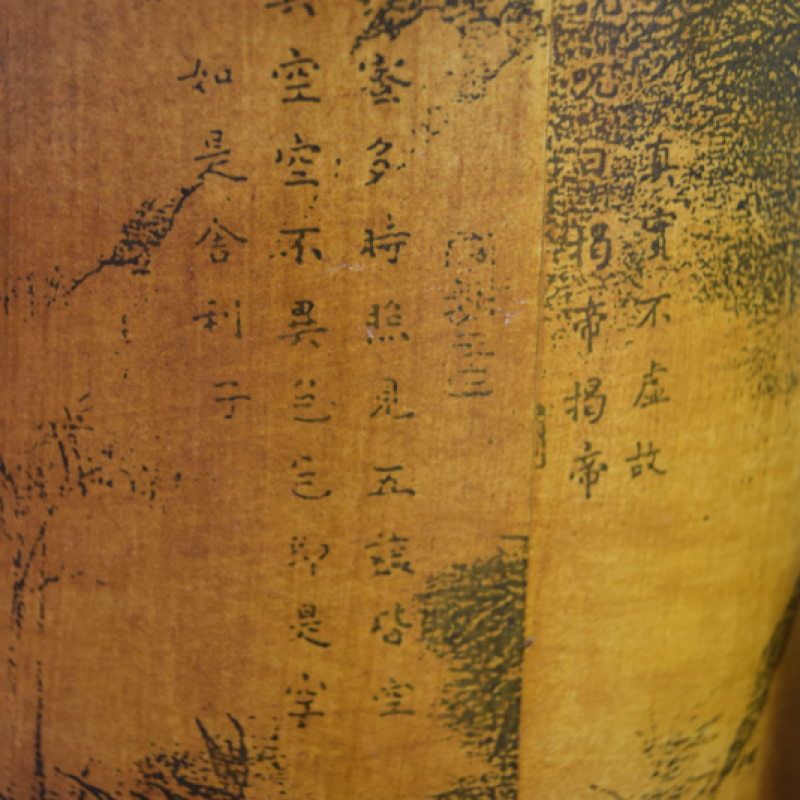 真實不虛故
呪曰揭帝揭帝
蜜多時照見五蘊皆空
空空不異色色即是空
如是舍利子